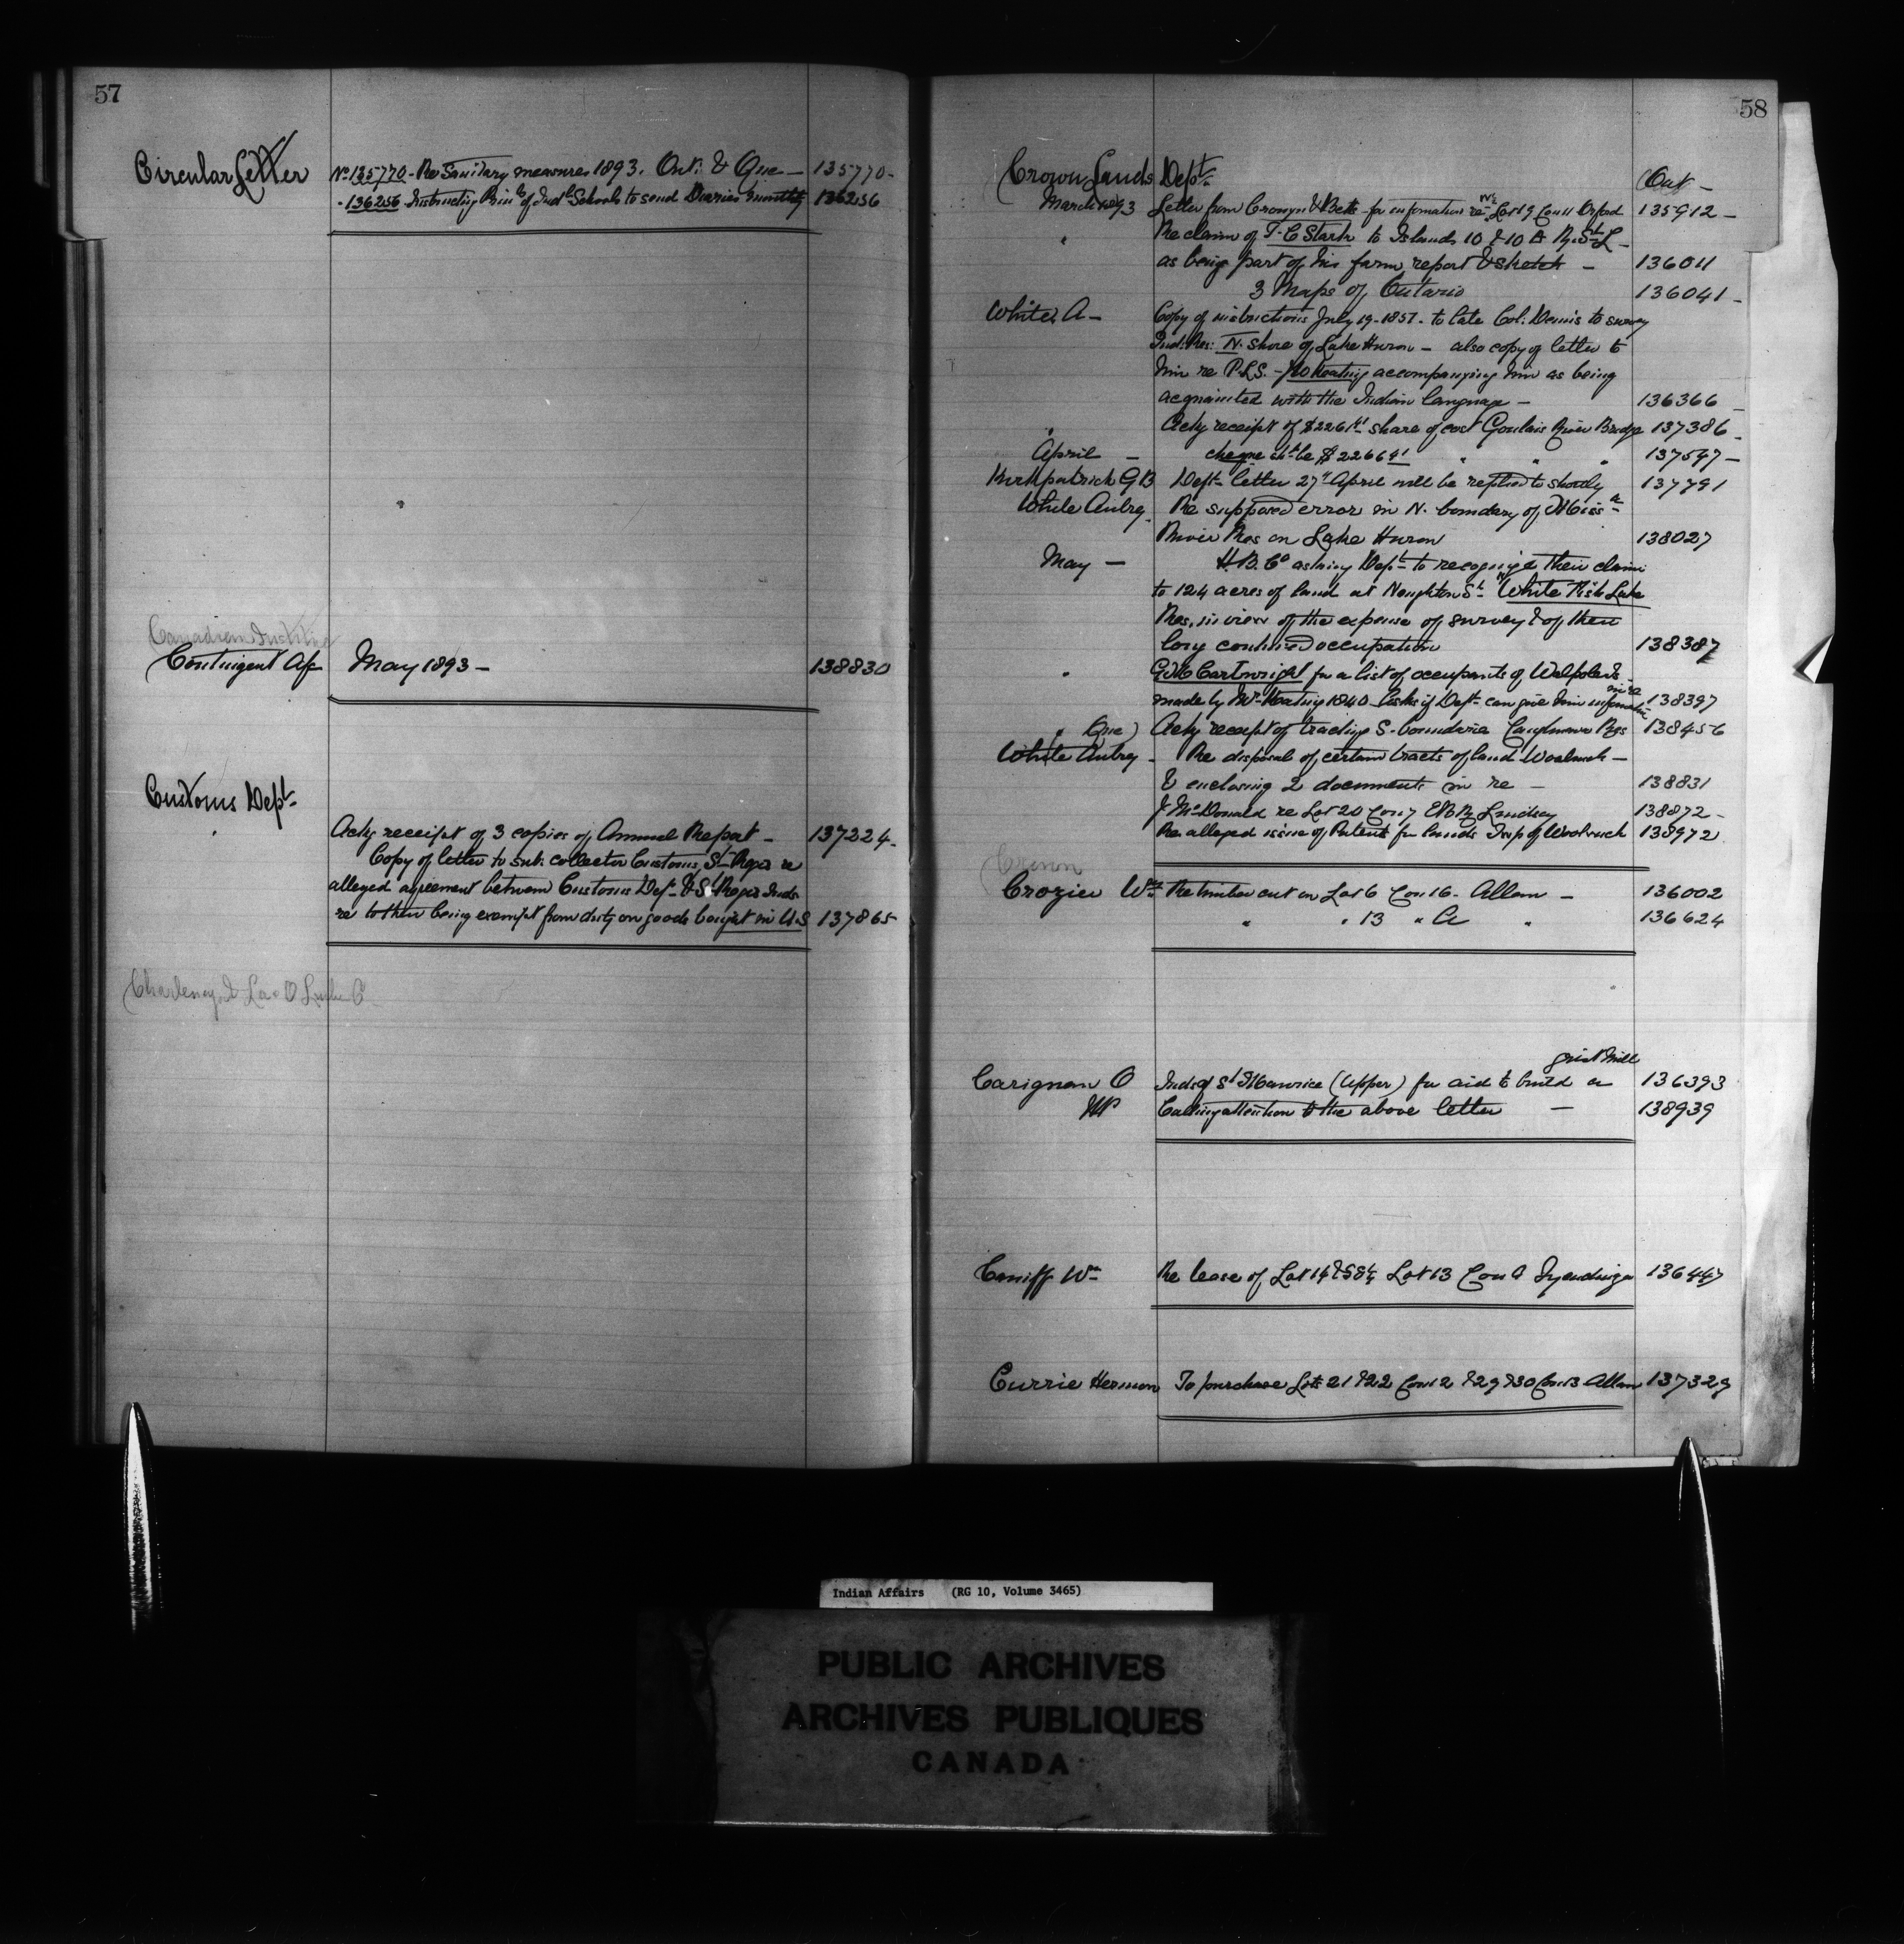 57
Circular Letter No 135770 - Re Sanitary measures 1893. Ont: & Que - 135770 -
- 136256 Instructing Prin ls of Ind l Schools to send Diaries monthly 136256
Canadian
Contingent Ac May 1893 - 138830
Customs Dept
Ackg receipt of 3 copies of Annual Report - 137224 -
Copy of letter to sub: collector Customs St Regis re
alleged agreement between Customs Dept & St Regis Inds
re to their being exempt from duty on goods bought in U.S 137865
58
Crown Lands Dept Ont -
March 1893 Letter from Cronyn & Betts for information re N½ Lot 9 Con 11 Orford 135912 -
" Re claim of T. C Stark to Islands 10 & 10 A R. St L -
as being part of his farm, report & sketch - 136011
3 Maps of Ontario 136041 -
White, A - Copy of instructions July 19 - 1851 - to late Col: Dennis to survey
Ind: Res: N. shore of Lake Huron - also copy of letter to
him re P.L.S. - Keating accompanying him as being
acquainted with the Indian language - 136366 -
" Ackg receipt of $226 share of cost Goulais River Bridge 137386 -
April - cheque sh ld be $226 " " " 137547 -
Kirkpatrick G B Dept letter 27" April will be replied to shortly 137791
White Aubrey Re supposed error in N. boundary of Miss a
River Res on Lake Huron 138027
May - H. B. Co asking Dept to recognize their claim
to 124 acres of land at Naughton St White Fish Lake
Res, in view of the expense of survey & of their
long continued occupation 138387
" Cartwright for a list of occupants of Walpole Is -
made by Mr Keating 1840 - Asks if Dept can give him information in re 138397
" Que) Ackg receipt of tracing S. boundaries Caughnawa Res 138456
White Aubrey - Re disposal of certain tracts of land Woolwich -
& enclosing 2 documents in re - 138831
J McDonald re Lot 20 Con 7 Lindsay 138872 -
Re alleged issue of Patents for lands Twp of Woolwich 138972
Crown
Crozier Wm Re timber cut on Lot 6 Con 16 - Allan - 136002
" " 13 " A " 136624
grist mill
Carignan O Inds of St Maurice (Upper) for aid to build a 136393
MP Calling attention to the above letter - 138939
Caniff Wm Re lease of Lot 14 & S ¾ Lot 13 Con A Tyendinaga 136447
Currie Hermon To purchase Lots 21 & 22 Con 12 & 29 & 30 Con 13 Allan 137329
Indian Affairs (RG 10, Volume 3465)
PUBLIC ARCHIVES
ARCHIVES PUBLIQUES
CANADA